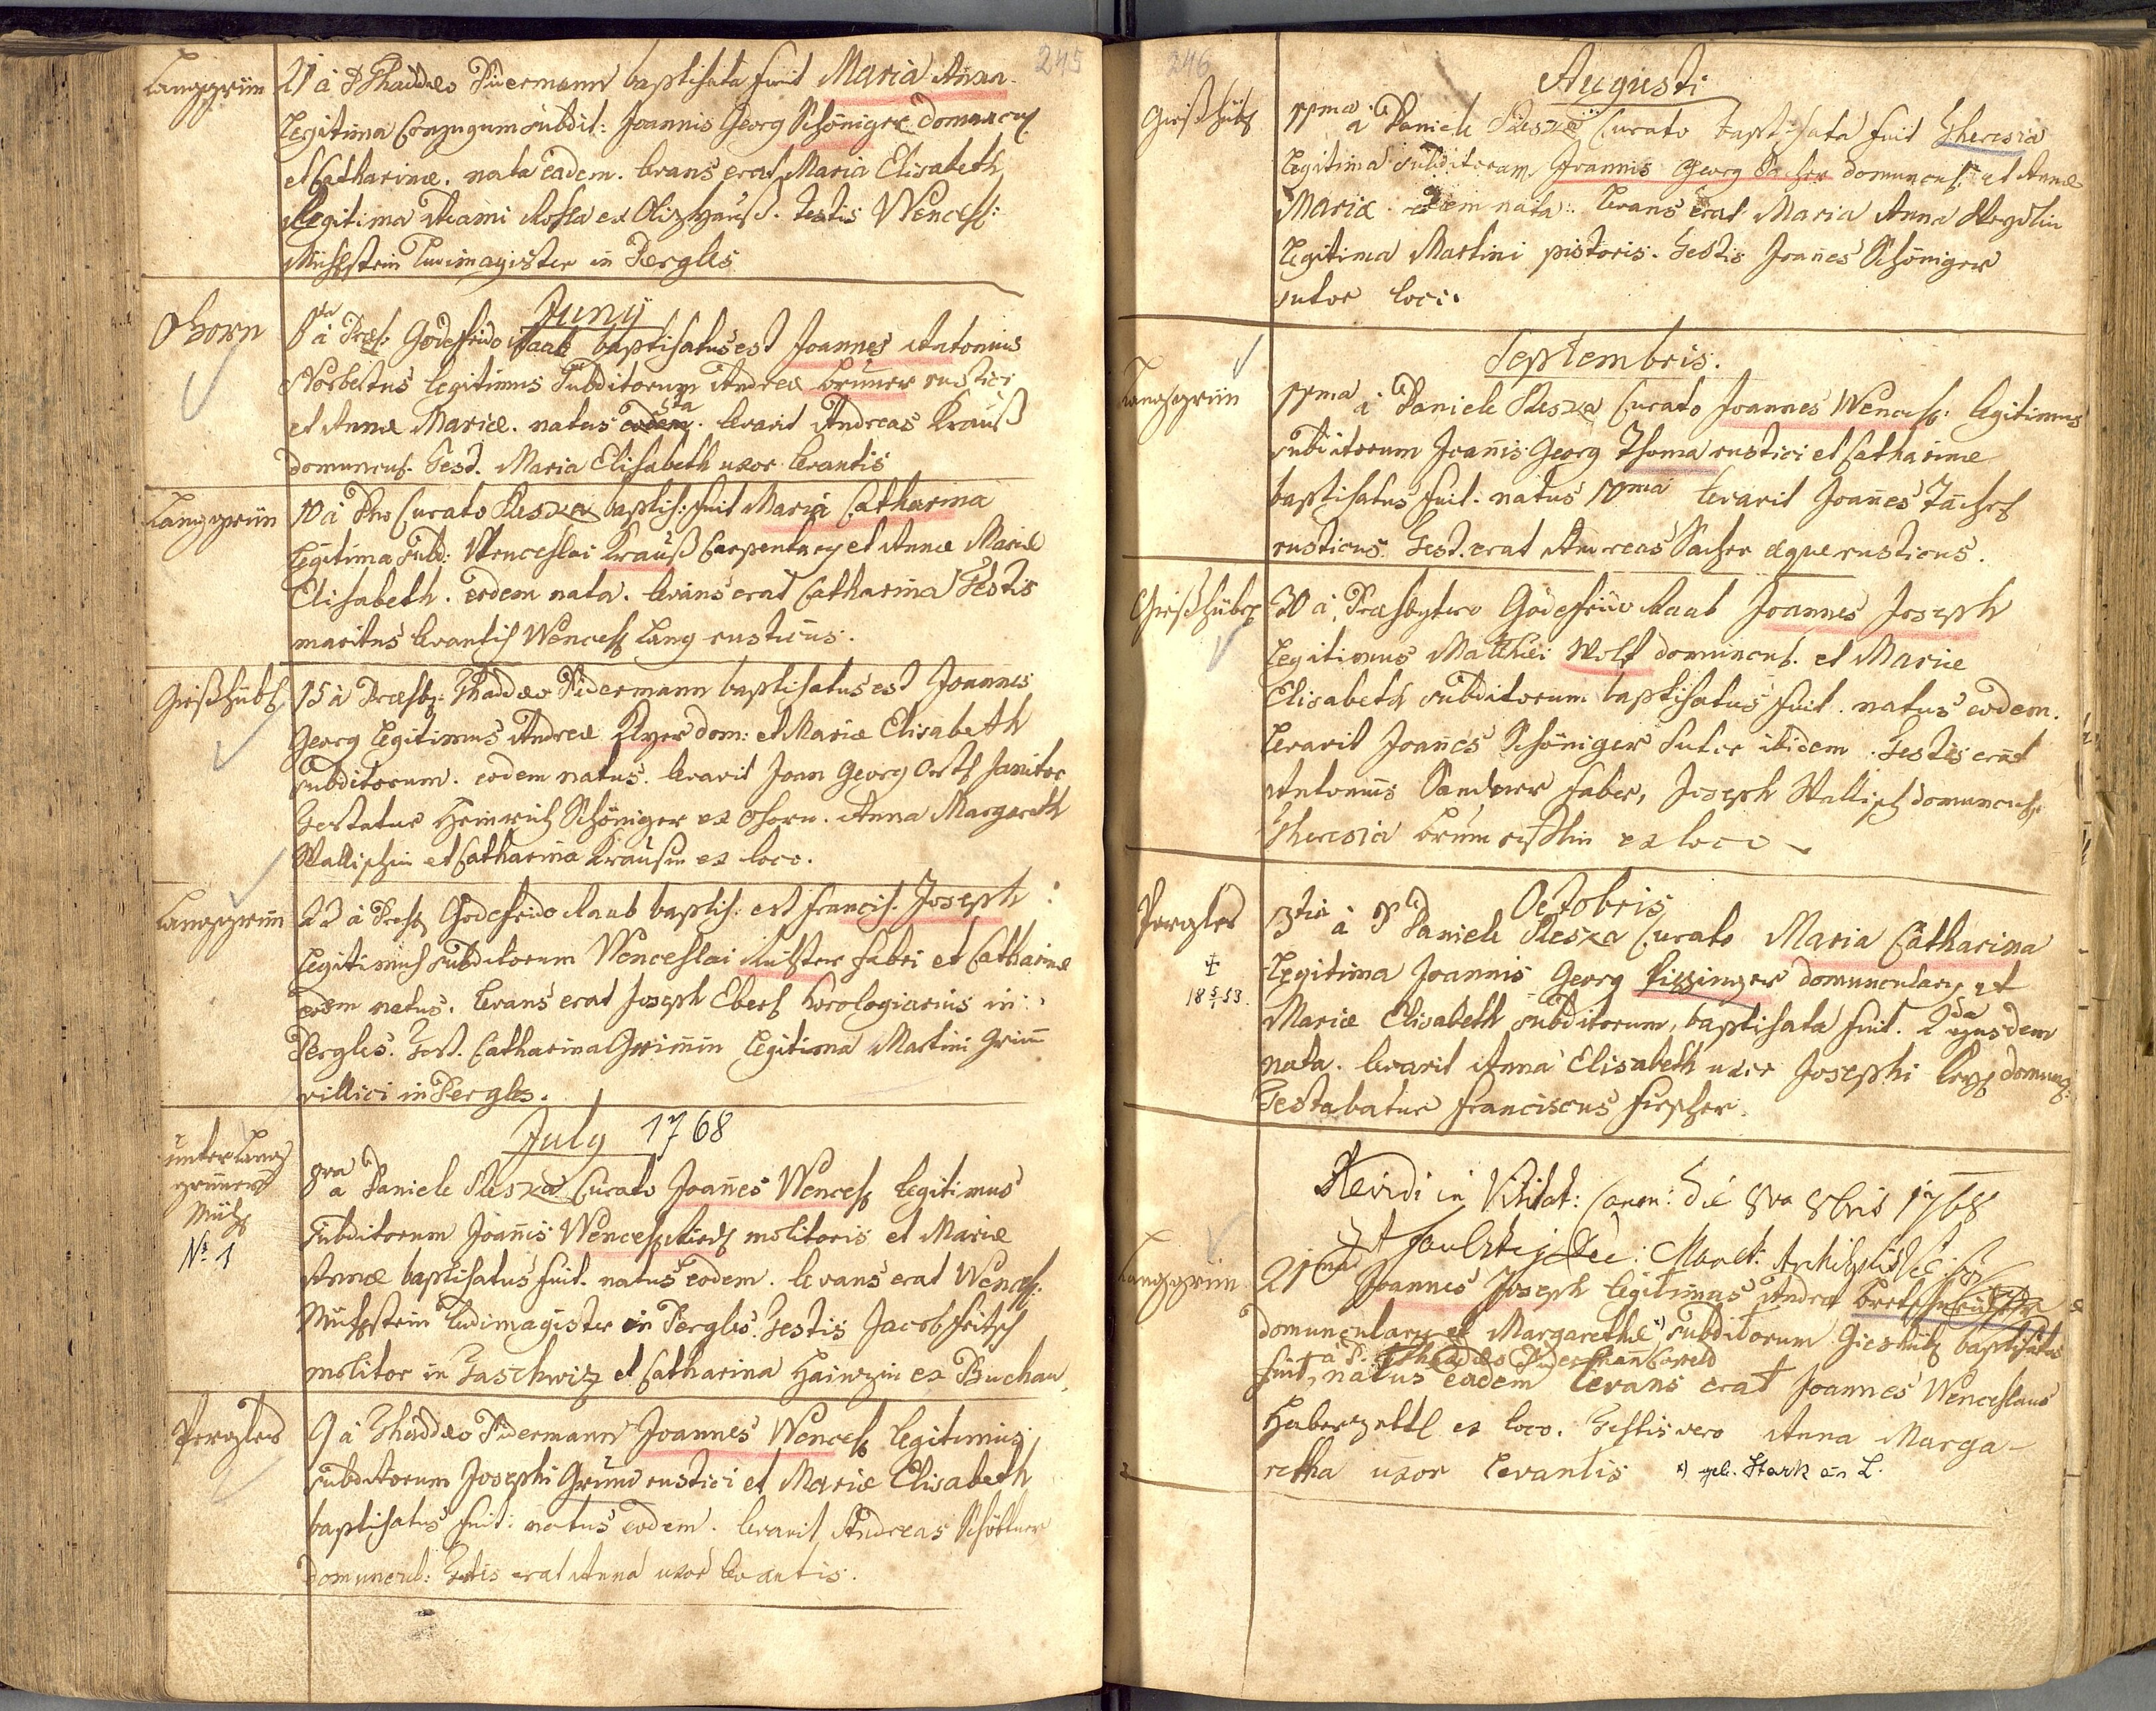 245
Langgrün
21 à P Thaddæo Pidermann baptisata fuit Maria Anna
Legitima Conjugum subdit: Joannis Georg Schöniger
et Catharinæ. nata eadem. levans erat Maria Elisabeth
Legitima Adami testis Wencesl:
Mühlstein Ludimagister in Pergles
Juny
Ohorn
à Presb: Godefrido Raab baptisatus est Joannes Antonius
Norbertus legitimus Subditorum Andreæ Brunner rustici
et Annæ Mariæ. natus eodem. levavit Andreas Krauß
domuncul. Test. Maria Elisabeth uxor levantis
Langgrün
10 à Curato Pleszca baptis: fuit Maria Catharina
Legitima subd: Wenceslai Krauß Carpentary et Annæ Mariæ
Elisabeth. eodem nata. levans erat Catharina Testis
maritus levantis Wencesl Lang rusticus.
Gießhübl
15 à Presb: Thaddæo Pidermann baptisatus est Joannes
Georg legitimus Andreæ dom: et Mariæ Elisabeth
subditorum. eodem natus. levavit Joan Georg janitor
Testatur Heinrich Schöniger ex Ohorn. Anna Margareth
Wallischin et Catharina Krausin ex loco.
Langgrün
23 à Presb Godefrido Raab baptis: est Francis. Joseph
Legitimus subditorum Wenceslai fabri et Catharinæ
eodem natus. levans erat Joseph Eberl horologiarius in
Pergles. Test. Catharina Grimmin legitima Martini Grimm
villici in Pergles.
July 1768
unter Lang
grüner
Mühl
No 1
8va à Daniele Pleszca Curato Joannes Wencesl legitimus
subditorum Joannis Wencesl molitoris et Mariæ
Annæ baptisatus fuit. natus eodem. levans erat Wencesl:
Mühlstein Ludimagister in Pergles. Testis Jacob Fritsch
molitor in Taschwiz et Catharina Hainzin ex Buchau
Pergles
9 à Thaddæo Pidermann Joannes Wencesl legitimus
subditorum Josephi Grimm rustici et Mariæ Elisabeth
baptisatus fuit: natus eodem. levavit Andreas Schöttner
domuncul: Testis erat Anna uxor levantis.
246
Augusti
Gießhübl
11ma à Daniele Pleszca Curato baptisata fuit Theresia
legitima subditorum Joannis Georg Sacher domuncul: et Annæ
Mariæ. eodem nata: levans erat Maria Anna
legitima Martini pistoris. Testis Joannes Schöniger
sutor loci.
Septembris.
Langgrün
11ma à Daniele Pleszca Curato Joannes Wencesl: legitimus
subditorum Joannis Georg Thoma rustici et Catharinæ
baptisatus fuit. natus 10ma levavit Joannes
rusticus. Test. erat Andreas Sacher æque rusticus.
Gießhübl
30 à Presbytero Godefrido Raab Joannes Joseph
Legitimus Matthæi Wolf domuncul. et Mariæ
Elisabeth subditorum baptisatus fuit. natus eodem.
levavit Joannes Schöniger Sutor ibidem. Testis erant
Antonius Sandner faber, Joseph Wallisch domuncul,
Theresia ex loco
Octobris
Pergles
18 5/1 53.
3tia à P Daniele Pleszca Curato Maria Catharina
Legitima Joannis Georg Pizzinger domunculary et
Mariæ Elisabeth subditorum, baptisata fuit. 2da ejusdem
nata. levavit Anna Elisabeth uxor Josephi domunc:
Testabatur Franciscus Fischer.
Revidi in Visitat: Canon: die 8va 8bris 1768
Langgrün
21ma Joannes Joseph legitimus Andreæ
domunculary et Margarethæ *) subditorum Gieshübl baptisatus
à P. Thaddæo Pidermann
fuit, natus eadem levans erat Joannes Wenceslaus
Haberzettl ex loco. Testis vero Anna Marga-
retha uxor levantis *) geb. Stark a. L.